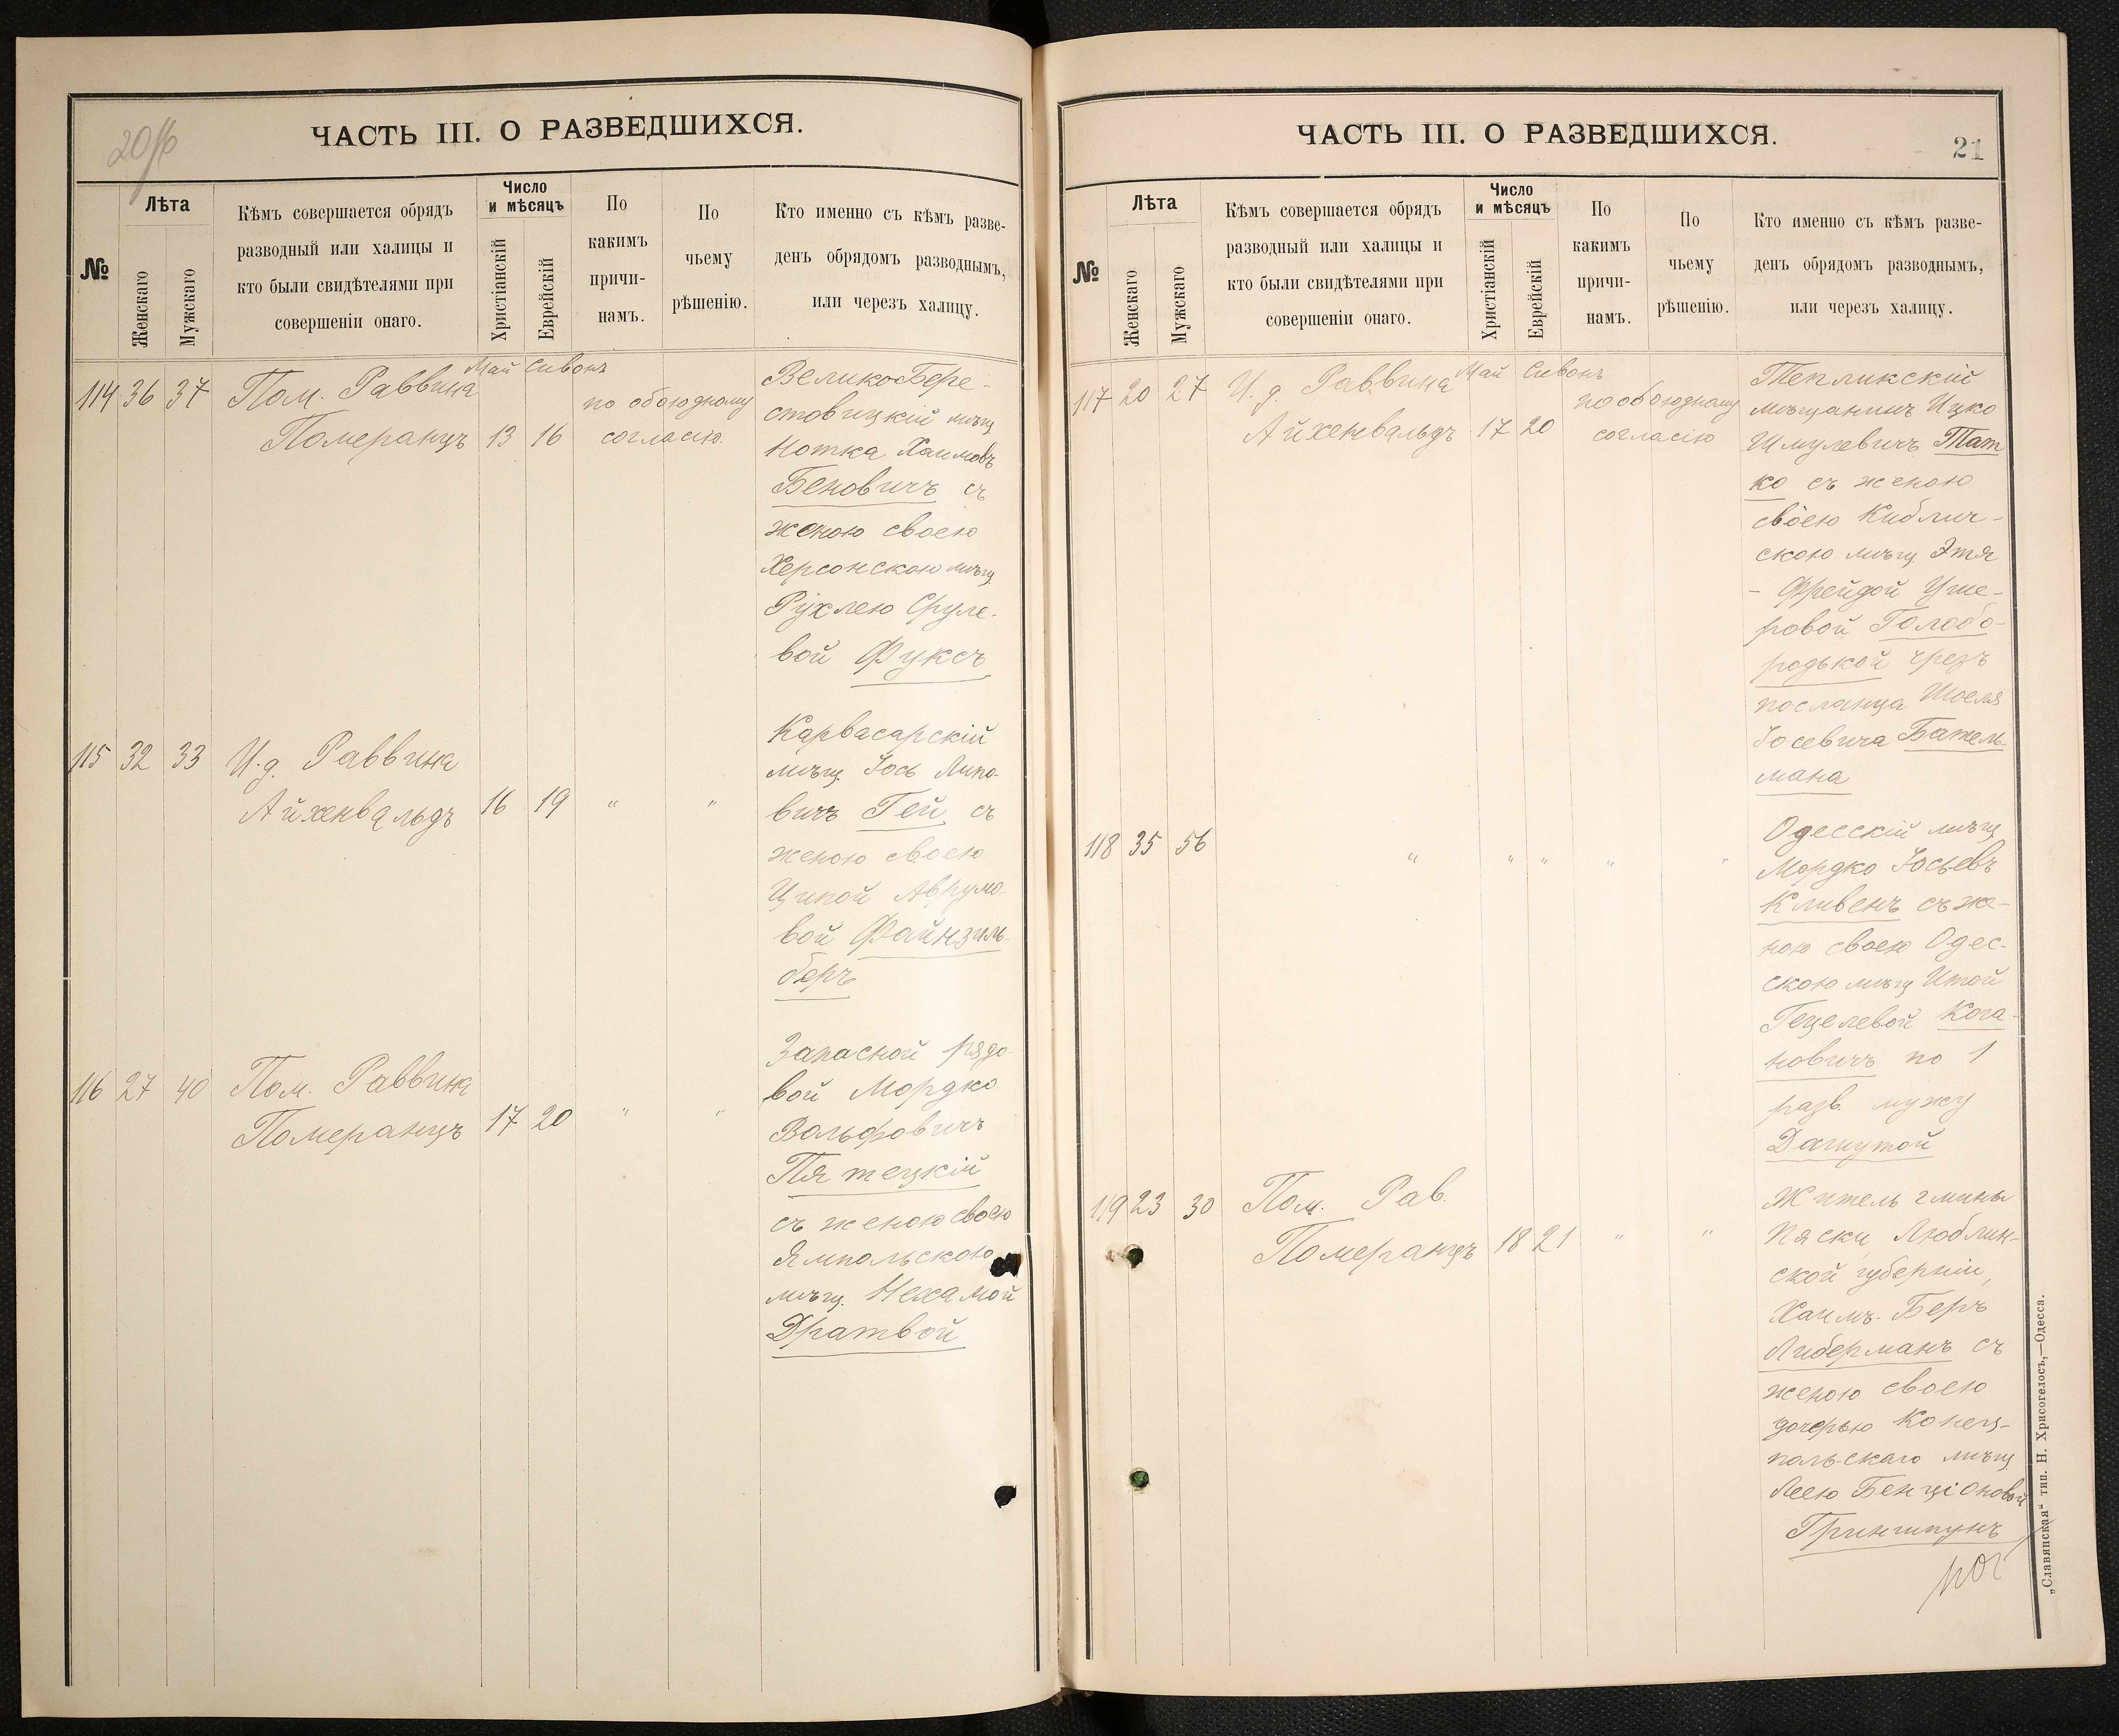 20/об
ЧАСТЬ III. О РАЗВЕДШИХСЯ.
№
Лѣта
Женскаго
Мужскаго
Кѣмъ совершается обрядъ
разводный или халицы и
кто были свидѣтелями при
совершеніи онаго.
Число
и мѣсяцъ
Христіанскій
Еврейскій
По
какимъ
причи-
намъ.
По
чьему
рѣшенію.
Кто именно съ кѣмъ разве-
денъ обрядомъ разводнымъ,
или черезъ халицу.
Май Сивонъ
114 36 37 Пом. Раввина
Померанцъ 13 16
по обоюдному
согласію.
ВеликоБере-
стовицкій мѣщ
Нотка Хаимовъ
Беновичъ съ
женою своею
Херсонскою мѣщ
Рухлею Сруле-
вой Фуксъ
115 32 33 И. д. Раввина
Айхенвальдъ 16 19 " "
Карвасарскій
мѣщ. Іось Липо-
вичъ Гей съ
женою своею
Ципой Аврумо-
вой Файнзиль-
беръ
116 27 40 Пом. Раввина
Померанцъ 17 20 " "
Запасной рядо-
вой Мордко
Вольфовичъ
Пятецкій
съ женою своею
Ямпольскою
мѣщ. Нехамой
Дратвой
ЧАСТЬ III. О РАЗВЕДШИХСЯ.
21
№
Лѣта
Женскаго
Мужскаго
Кѣмъ совершается обрядъ
разводный или халицы и
кто были свидѣтелями при
совершеніи онаго.
Число
и мѣсяцъ
Христіанскій
Еврейскій
По
какимъ
причи-
намъ.
По
чьему
рѣшенію.
Кто именно съ кѣмъ разве-
денъ обрядомъ разводнымъ,
или черезъ халицу.
Май Сивонъ
117 20 27 И. д. Раввина
Айхенвальдъ 17 20
по обоюдному
согласію
Тепликскій
мѣщанинъ Ицко
Шмулевичъ Тат
ко съ женою
своею Киблич-
скою мѣщ. Этя
- Фрейдой Уше-
ровой Голобо-
родькой чрезъ
посланца Шоеля
Іосевича Бажель-
мана
118 35 56 " " " " "
Одесскій мѣщ
Мордко Іосьевъ
Кливенъ съ же-
ною своею Одес-
скою мѣщ Итой
Гецелевой Кога-
новичъ по 1
разв. мужу
Дашутой
119 23 30 Пом. Рав.
Померанцъ 18 21 " "
Житель гмины
Пяски Люблин-
ской губерніи,
Хаимъ-Беръ
Либерманъ съ
женою своею
дочерью Конец-
польскаго мѣщ
Леею Бенціоновой
Гриншпунъ
„Славянская“ тип. Н. Хрисогелосъ,—Одесса.